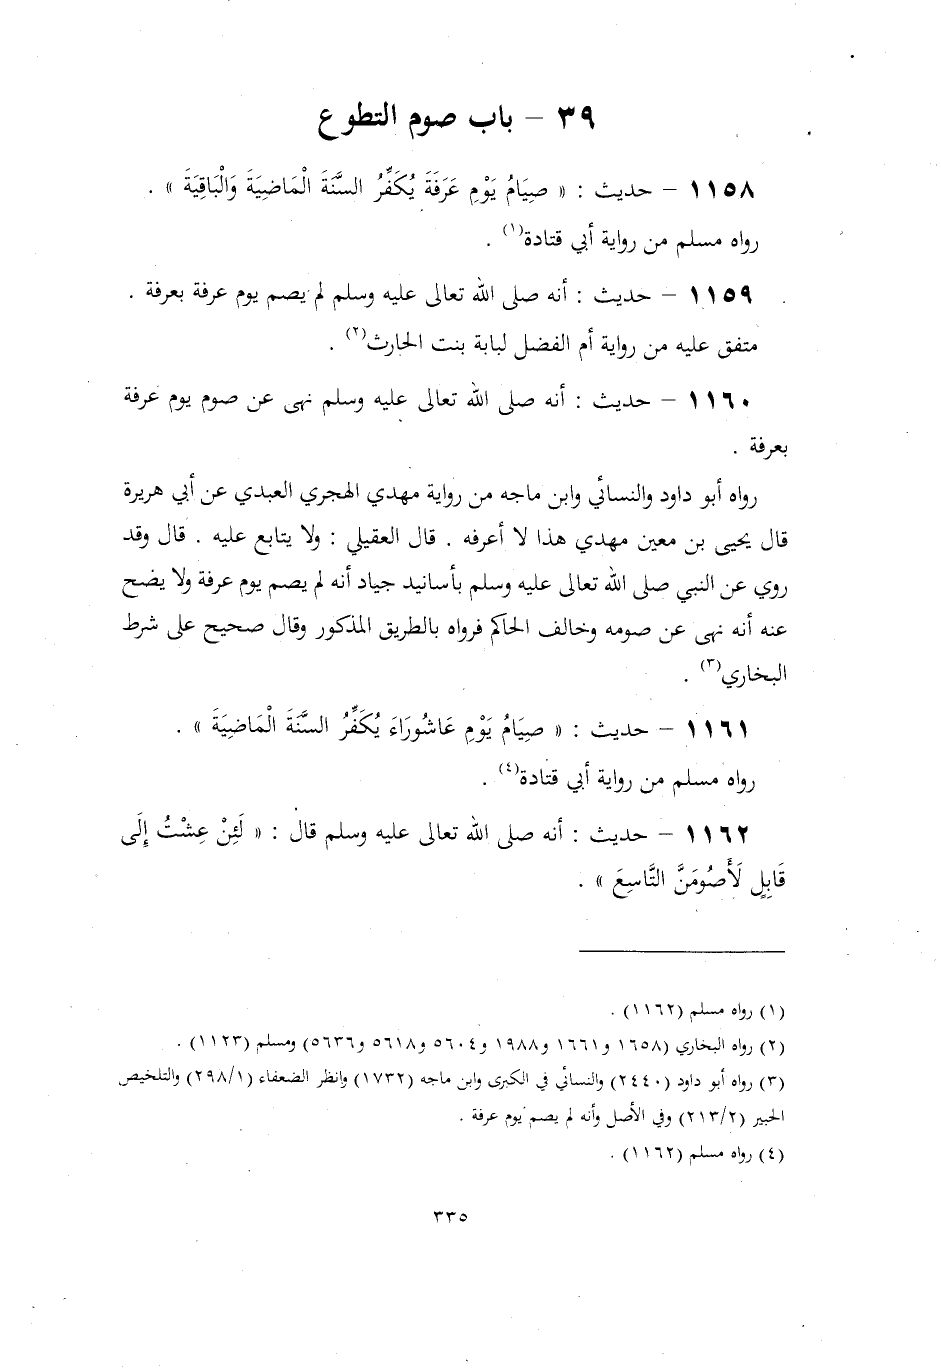 ٣٩ – باب صوم التطوع
١١٥٨ – حديث : « صِيَامُ يَوْمِ عَرَفَةَ يُكَفِّرُ السَّنَةَ الْمَاضِيَةَ وَالْبَاقِيَةَ » .
رواه مسلم من رواية أبي قتادة(١) .
١١٥٩ – حديث : أنه صلى الله تعالى عليه وسلم لم يصم يوم عرفة بعرفة .
متفق عليه من رواية أم الفضل لبابة بنت الحارث(٢) .
١١٦٠ – حديث : أنه صلى الله تعالى عليه وسلم نهى عن صوم يوم عرفة
بعرفة .
رواه أبو داود والنسائي وابن ماجه من رواية مهدي الهجري العبدي عن أبي هريرة
قال يحيى بن معين مهدي هذا لا أعرفه . قال العقيلي : ولا يتابع عليه . قال وقد
روي عن النبي صلى الله تعالى عليه وسلم بأسانيد جياد أنه لم يصم يوم عرفة ولا يضح
عنه أنه نهى عن صومه وخالف الحاكم فرواه بالطريق المذكور وقال صحيح على شرط
البخاري(٣) .
١١٦١ – حديث : « صِيَامُ يَوْمِ عَاشُورَاءَ يُكَفِّرُ السَّنَةَ الْمَاضِيَةَ » .
رواه مسلم من رواية أبي قتادة(٤) .
١١٦٢ – حديث : أنه صلى الله تعالى عليه وسلم قال : « لَئِنْ عِشْتُ إِلَى
قَابِلٍ لَأَصُومَنَّ التَّاسِعَ » .
(١) رواه مسلم (١١٦٢) .
(٢) رواه البخاري (١٦٥٨ و١٦٦١ و١٩٨٨ و٥٦٠٤ و٥٦١٨ و٥٦٣٦) ومسلم (١١٢٣) .
(٣) رواه أبو داود (٢٤٤٠) والنسائي في الكبرى وابن ماجه (١٧٣٢) وانظر الضعفاء (٢٩٨/١) والتلخيص
الحبير (٢١٣/٢) وفي الأصل وأنه لم يصم يوم عرفة .
(٤) رواه مسلم (١١٦٢) .
٣٣٥